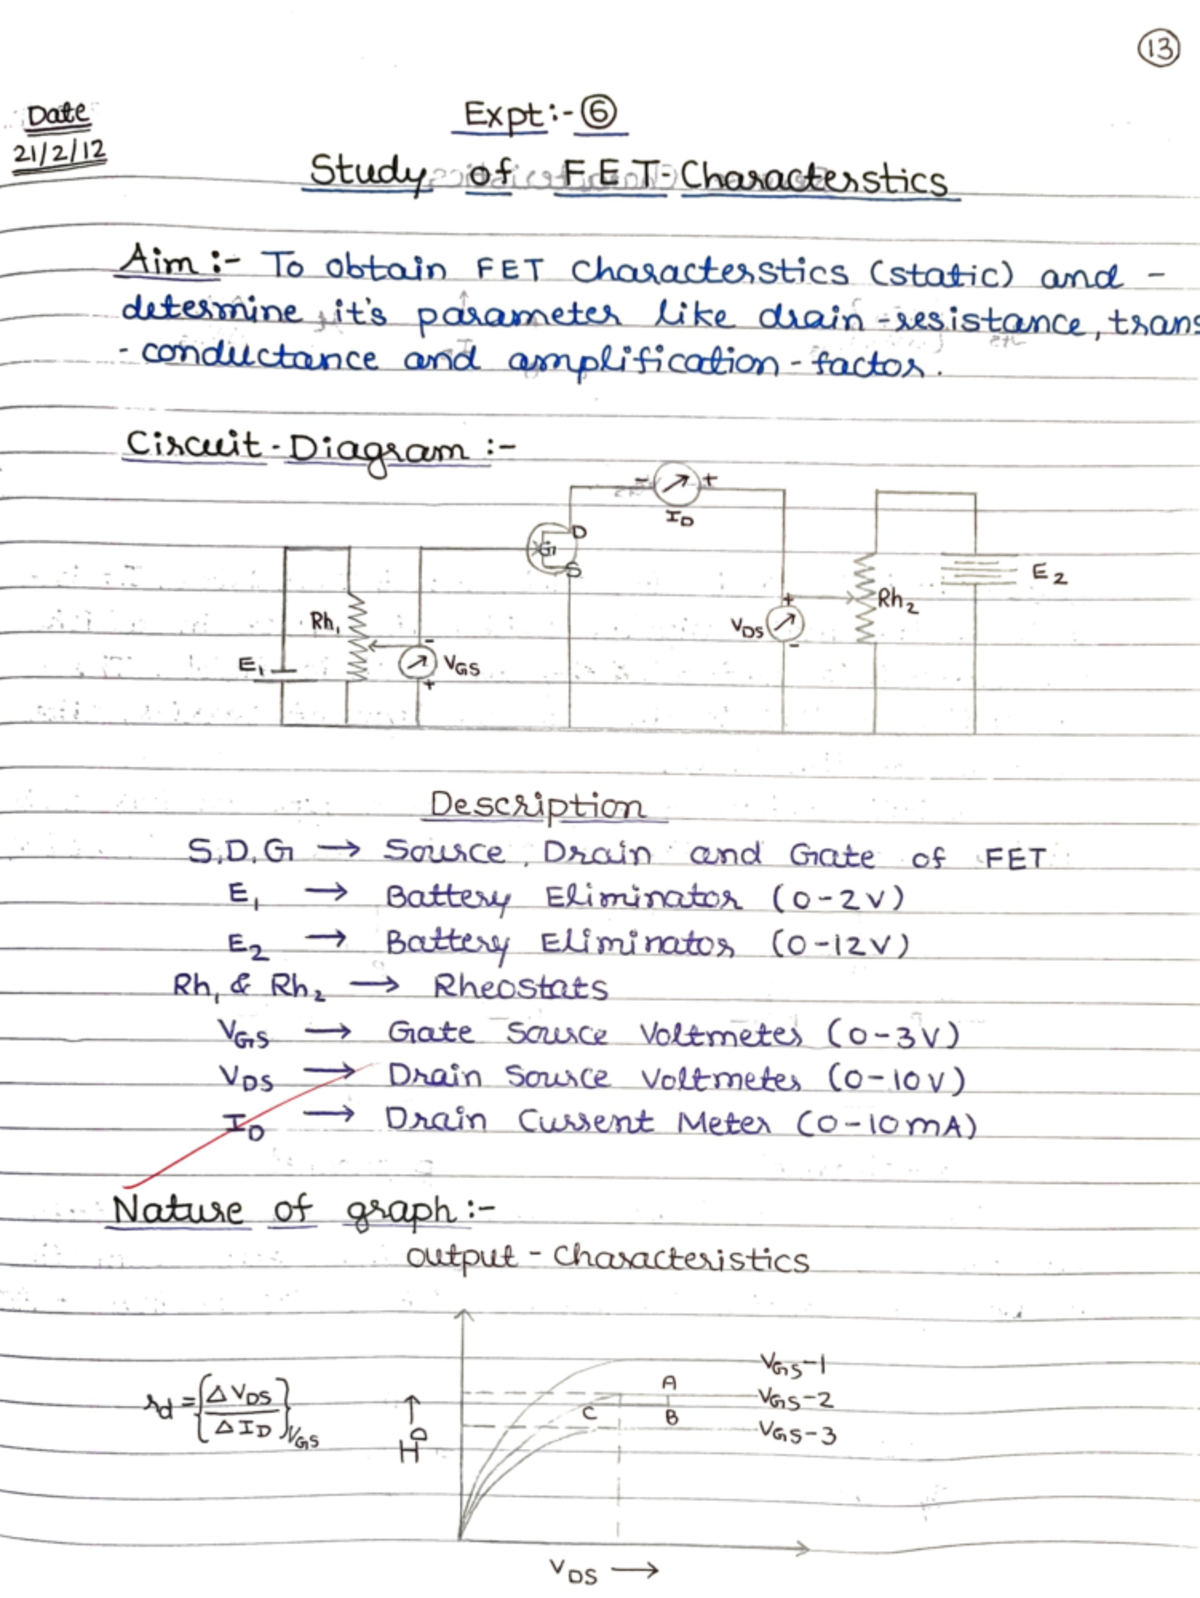 13
Date
21/2/12
Expt:- 6
Study of FET-Characterstics
Aim :- To obtain FET characterstics (static) and -
determine, it's parameter like drain-resistance, trans
- conductance and amplification-factor.
Circuit-Diagram :-
- +
ID
D
G
S
E2
Rh2
Rh1
+
VDS
-
E1
-
VGS
+
Description
S, D, G → Source, Drain and Gate of FET
E1 → Battery Eliminator (0-2V)
E2 → Battery Eliminator (0-12V)
Rh1 & Rh2 → Rheostats
VGS → Gate Source Voltmeter (0-3V)
VDS → Drain Source Voltmeter (0-10V)
ID → Drain Current Meter (0-10mA)
Nature of graph :-
output - characteristics
VGS-1
A
VGS-2
C B
VGS-3
rd = {ΔVDS / ΔID}VGS
ID →
VDS →